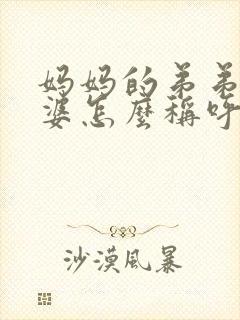 妈妈的弟弟
婆怎麼稱呼
沙漠風暴